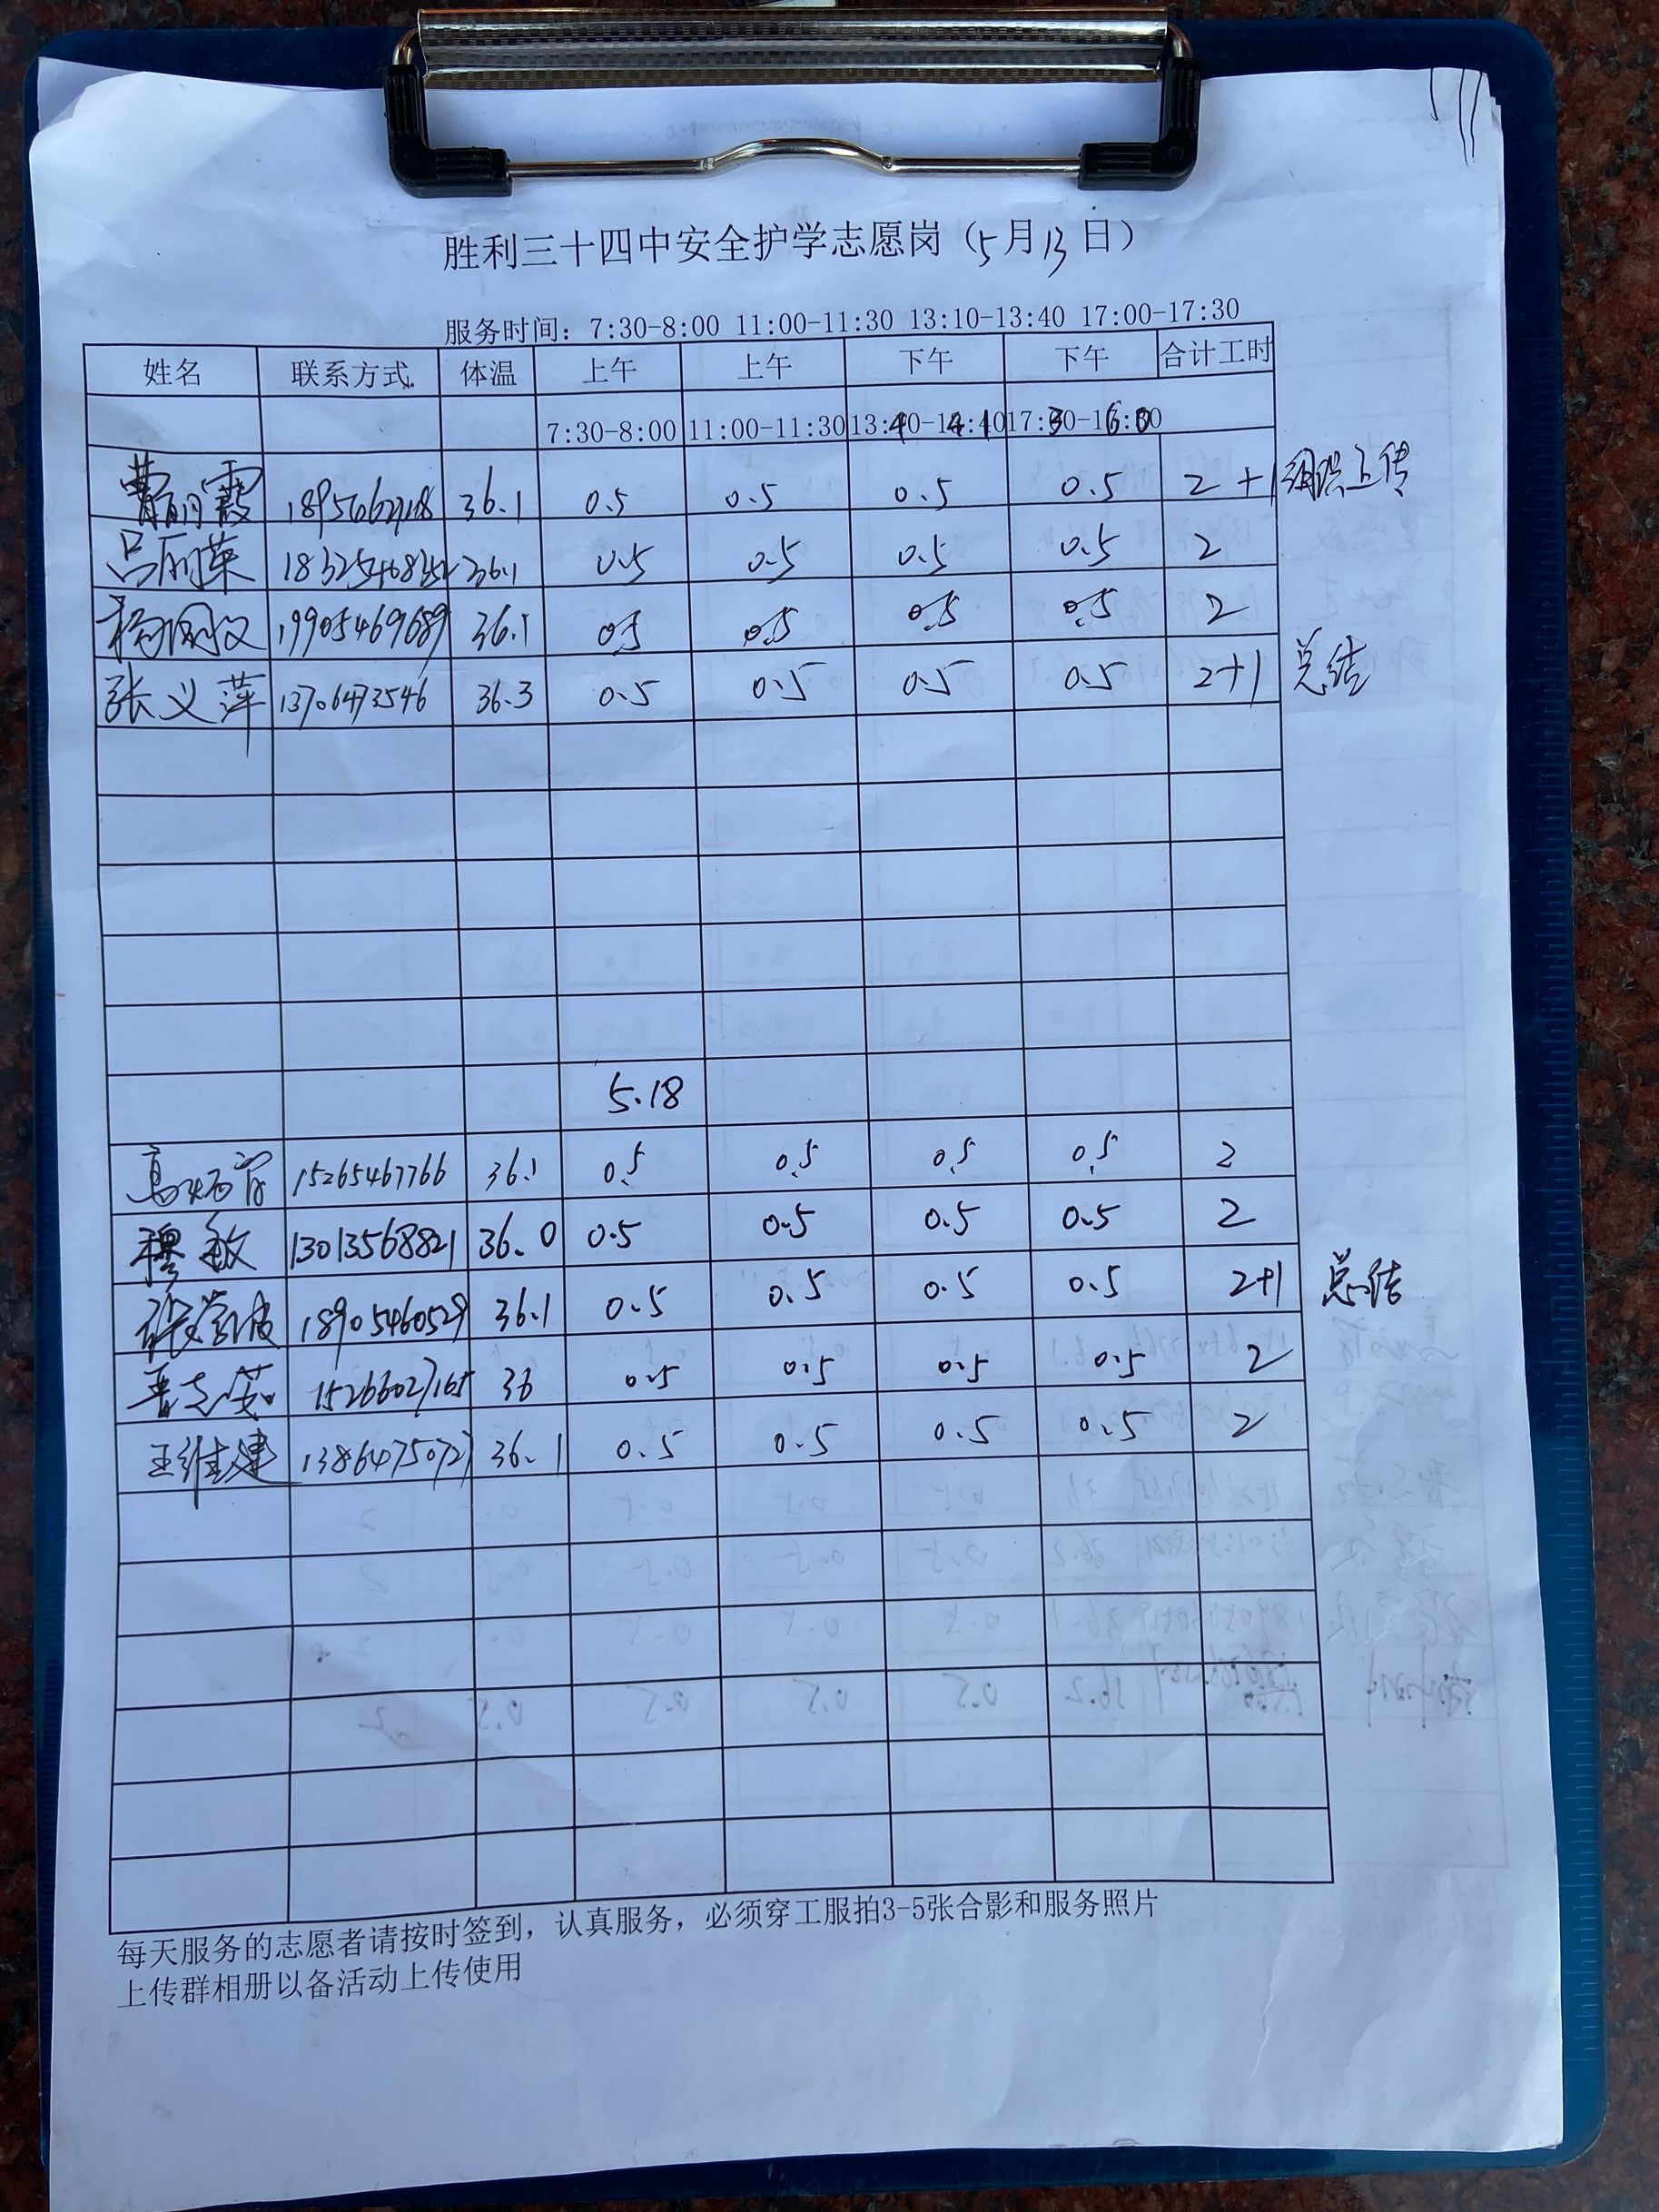 胜利三十四中安全护学志愿岗（5月13日）
服务时间：7:30-8:00 11:00-11:30 13:10-13:40 17:00-17:30
姓名 联系方式 体温 上午 上午 下午 下午 合计工时
7:30-8:00 11:00-11:30
曹丽霞 36.1 0.5 0.5 0.5 0.5 2+1 组织上传
吕丽荣 36.1 0.5 0.5 0.5 0.5 2
19905469689 36.1 0.5 0.5 0.5 0.5 2
张义萍 13706473546 36.3 0.5 0.5 0.5 0.5 2+1 总结
5.18
15265467766 36.1 0.5 0.5 0.5 0.5 2
穆敏 13013568821 36.0 0.5 0.5 0.5 0.5 2
18905460529 36.1 0.5 0.5 0.5 0.5 2+1 总结
15266027165 36 0.5 0.5 0.5 0.5 2
王维建 13864750727 36.1 0.5 0.5 0.5 0.5 2
每天服务的志愿者请按时签到，认真服务，必须穿工服拍3-5张合影和服务照片
上传群相册以备活动上传使用